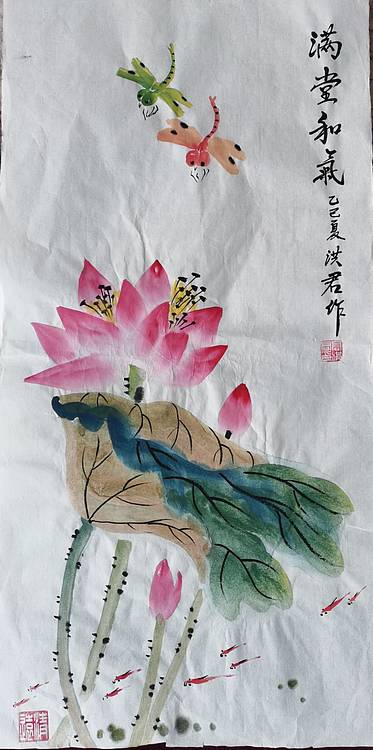 满堂和氣
乙巳夏洪君作